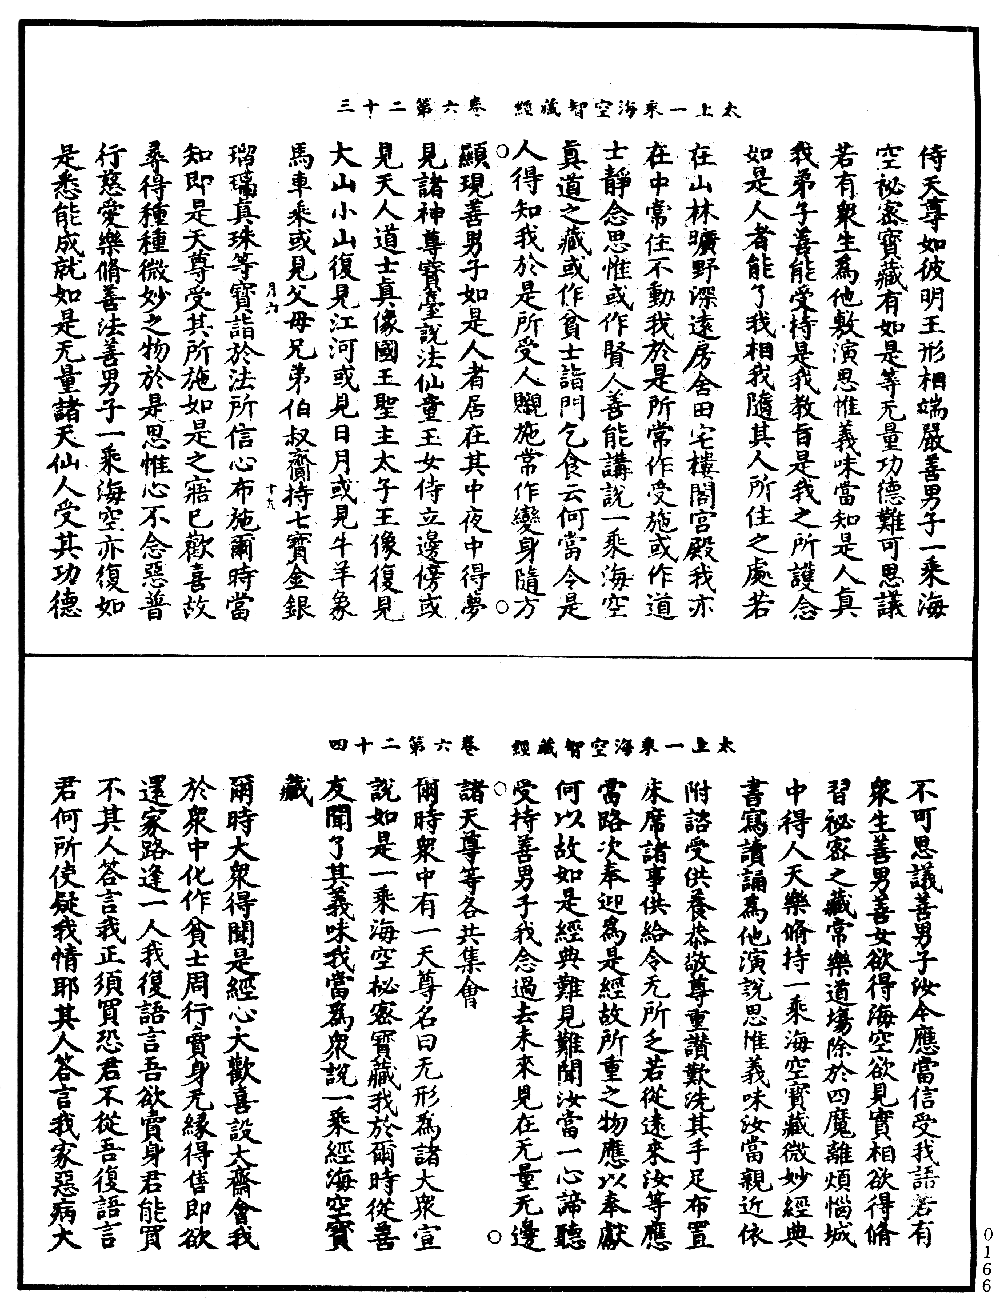 太上一乘海空智藏經　卷六第二十三
侍天尊如彼明王形相端嚴善男子一乘海
空祕密寶藏有如是等无量功德難可思議
若有衆生爲他敷演思惟義味當知是人真
我弟子善能受持是我教旨是我之所護念
如是人者能了我相我隨其人所住之處若
在山林曠野深遠房舍田宅樓閣宮殿我亦
在中常住不動我於是所常作受施或作道
士靜念思惟或作賢人善能講說一乘海空
真道之藏或作貧士詣門乞食云何當令是
人得知我於是所受人䞋施常作變身隨方
顯現善男子如是人者居在其中夜中得夢
見諸神尊寶臺說法仙童玉女侍立邊傍或
見天人道士真像國王聖主太子王像復見
大山小山復見江河或見日月或見牛羊象
馬車乘或見父母兄弟伯叔齎持七寶金銀
月六　十九
瑠璃真珠等寶詣於法所信心布施爾時當
知即是天尊受其所施如是之寤已歡喜故
尋得種種微妙之物於是思惟心不念惡普
行慈愛樂脩善法善男子一乘海空亦復如
是悉能成就如是无量諸天仙人受其功德
太上一乘海空智藏經　卷六第二十四
不可思議善男子汝今應當信受我語若有
衆生善男善女欲得海空欲見實相欲得脩
習祕密之藏常樂道場除於四魔離煩惱城
中得人天樂脩持一乘海空寶藏微妙經典
書寫讀誦爲他演說思惟義味汝當親近依
附諮受供養恭敬尊重讚歎洗其手足布置
床席諸事供給令无所乏若從遠來汝等應
當路次奉迎爲是經故所重之物應以奉獻
何以故如是經典難見難聞汝當一心諦聽
受持善男子我念過去未來見在无量无邊
諸天尊等各共集會
爾時衆中有一天尊名曰无形爲諸大衆宣
說如是一乘海空祕密寶藏我於爾時從善
友聞了其義味我當爲衆說一乘經海空寶
藏
爾時大衆得聞是經心大歡喜設大齋會我
於衆中化作貧士周行賣身无緣得售即欲
還家路逢一人我復語言吾欲賣身君能買
不其人答言我正須買恐君不從吾復語言
君何所使疑我情耶其人答言我家惡病大
0166